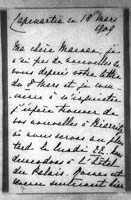 Capmartin ce 18 mars
1909
Ma chère Maman, je
n'ai pas de nouvelles de
vous depuis votre lettre
du 8 Mars et je com-
mence à m'inquiéter
j'espère trouver de
vos nouvelles à Biarritz
où nous serons au plus
tard le lundi 22. Nous
descendons à l'hôtel
du Palais.